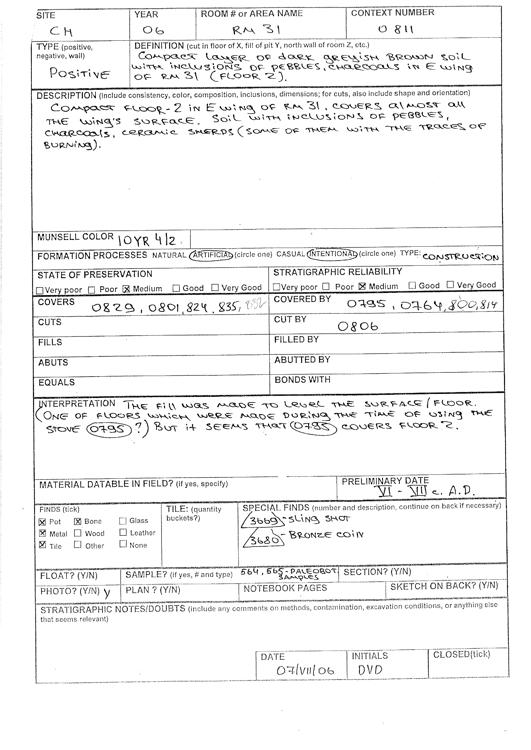 SITE YEAR ROOM # or AREA NAME CONTEXT NUMBER
CH 06 RM 31 0811
TYPE (positive, negative, wall) DEFINITION (cut in floor of X, fill of pit Y, north wall of room Z, etc.)
Positive
COMPACT LAYER OF DARK GREYISH BROWN SOIL
WITH INCLUSIONS OF PEBBLES, CHARCOALS IN E WING
OF RM 31 (FLOOR 2).
DESCRIPTION (Include consistency, color, composition, inclusions, dimensions; for cuts, also include shape and orientation)
COMPACT FLOOR-2 IN E WING OF RM 31. COVERS ALMOST ALL
THE WING'S SURFACE. SOIL WITH INCLUSIONS OF PEBBLES,
CHARCOALS, CERAMIC SHERDS (SOME OF THEM WITH THE TRACES OF
BURNING).
MUNSELL COLOR 10YR 4/2
FORMATION PROCESSES NATURAL ARTIFICIAL (circle one) CASUAL INTENTIONAL (circle one) TYPE: CONSTRUCTION
STATE OF PRESERVATION STRATIGRAPHIC RELIABILITY
Very poor Poor Medium Good Very Good Very poor Poor Medium Good Very Good
COVERS 0829, 0801, 824, 835, COVERED BY 0795, 0764, 800, 814
CUTS CUT BY 0806
FILLS FILLED BY
ABUTS ABUTTED BY
EQUALS BONDS WITH
INTERPRETATION THE FILL WAS MADE TO LEVEL THE SURFACE/FLOOR.
(ONE OF FLOORS WHICH WERE MADE DURING THE TIME OF USING THE
STOVE 0795?) BUT IT SEEMS THAT 0795 COVERS FLOOR 2.
MATERIAL DATABLE IN FIELD? (if yes, specify) PRELIMINARY DATE
VI - VII c. A.D.
FINDS (tick) TILE: (quantity buckets?) SPECIAL FINDS (number and description, continue on back if necessary)
Pot Bone Glass 3669 - SLING SHOT
Metal Wood Leather
Tile Other None 3680 - BRONZE COIN
FLOAT? (Y/N) SAMPLE? (if yes, # and type) 564, 565 - PALEOBOT SAMPLES SECTION? (Y/N)
PHOTO? (Y/N) y PLAN ? (Y/N) NOTEBOOK PAGES SKETCH ON BACK? (Y/N)
STRATIGRAPHIC NOTES/DOUBTS (include any comments on methods, contamination, excavation conditions, or anything else
that seems relevant)
DATE INITIALS CLOSED(tick)
07/VII/06 DVD